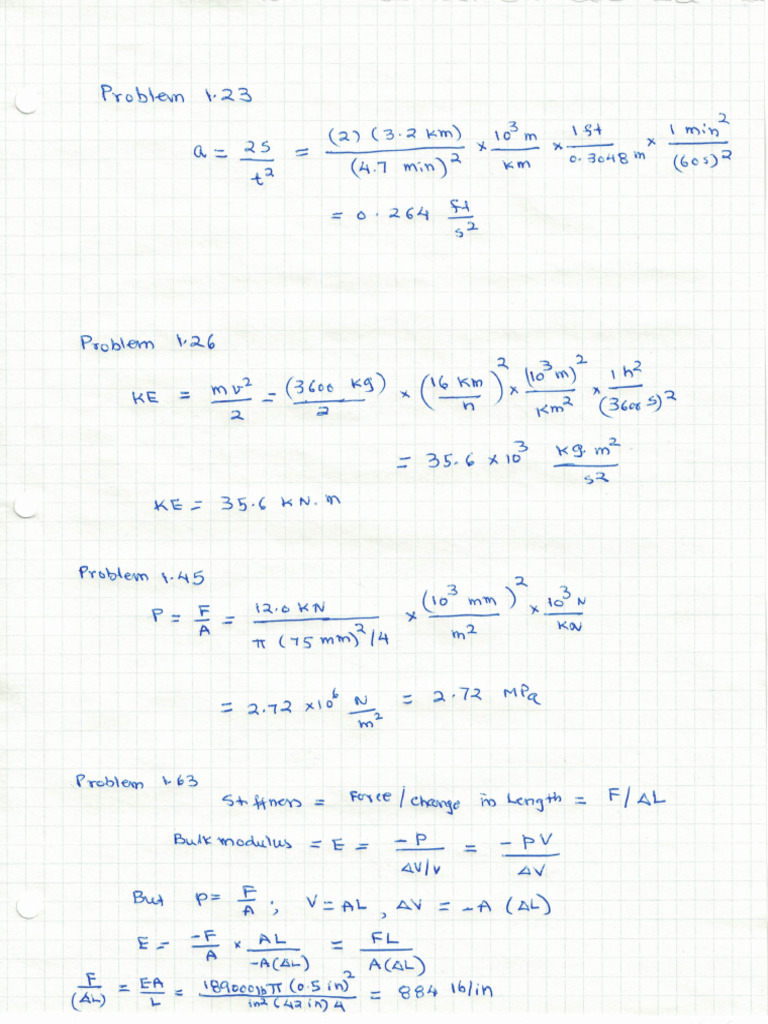 Problem 1.23
a = 2S/t² = (2)(3.2 km)/(4.7 min)² × 10³ m/km × 1 ft/0.3048 m × 1 min²/(60s)²
= 0.264 ft/s²
Problem 1.26
KE = mv²/2 = (3600 kg)/2 × (16 km/h)² × (10³ m)²/km² × 1 h²/(3600 s)²
= 35.6 × 10³ kg.m²/s²
KE = 35.6 kN.m
Problem 1.45
P = F/A = 12.0 kN/π(75 mm)²/4 × (10³ mm)²/m² × 10³ N/kN
= 2.72 × 10⁶ N/m² = 2.72 MPa
Problem 1.63
Stiffness = Force/change in Length = F/ΔL
Bulk modulus = E = -P/ΔV/V = -PV/ΔV
But P = F/A; V = AL, ΔV = -A(ΔL)
E = -F/A × AL/-A(ΔL) = FL/A(ΔL)
F/(ΔL) = EA/L = 189000 lb π(0.5 in)²/in²(42 in)4 = 884 lb/in